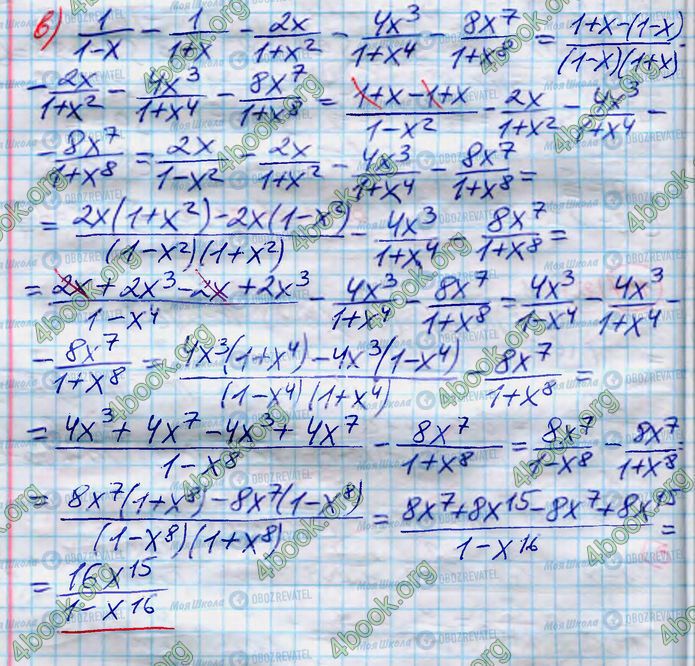 в) 1/(1-x) - 1/(1+x) - 2x/(1+x²) - 4x³/(1+x⁴) - 8x⁷/(1+x⁸) = (1+x-(1-x))/((1-x)(1+x)) -
- 2x/(1+x²) - 4x³/(1+x⁴) - 8x⁷/(1+x⁸) = (1+x-1+x)/(1-x²) - 2x/(1+x²) - 4x³/(1+x⁴) -
- 8x⁷/(1+x⁸) = 2x/(1-x²) - 2x/(1+x²) - 4x³/(1+x⁴) - 8x⁷/(1+x⁸) =
= (2x(1+x²)-2x(1-x²))/((1-x²)(1+x²)) - 4x³/(1+x⁴) - 8x⁷/(1+x⁸) =
= (2x+2x³-2x+2x³)/(1-x⁴) - 4x³/(1+x⁴) - 8x⁷/(1+x⁸) = 4x³/(1-x⁴) - 4x³/(1+x⁴) -
- 8x⁷/(1+x⁸) = (4x³(1+x⁴)-4x³(1-x⁴))/((1-x⁴)(1+x⁴)) - 8x⁷/(1+x⁸) =
= (4x³+4x⁷-4x³+4x⁷)/(1-x⁸) - 8x⁷/(1+x⁸) = 8x⁷/(1-x⁸) - 8x⁷/(1+x⁸) =
= (8x⁷(1+x⁸)-8x⁷(1-x⁸))/((1-x⁸)(1+x⁸)) = (8x⁷+8x¹⁵-8x⁷+8x¹⁵)/(1-x¹⁶) =
= 16x¹⁵/(1-x¹⁶)
4book.org
Моя Школа OBOZREVATEL